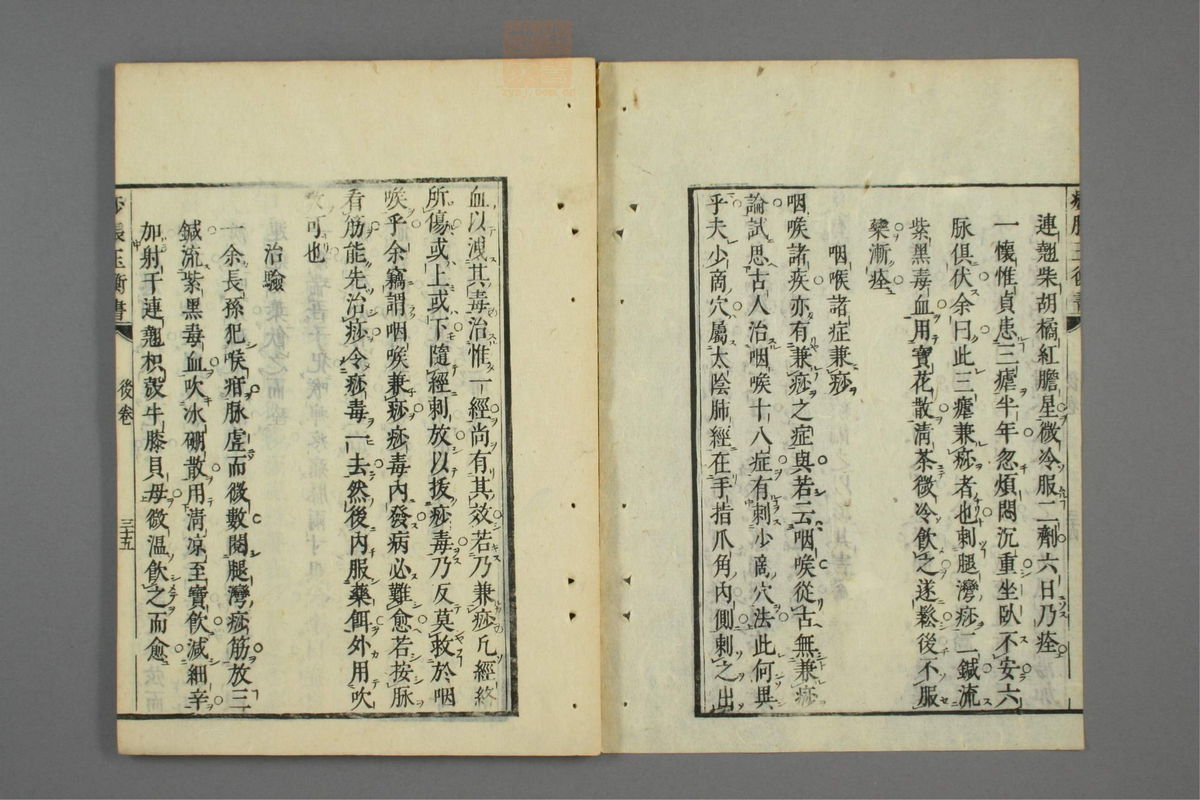 連翹柴胡橘紅膽星微冷服二劑六日乃痊
一懷惟貞患三瘧半年忽煩悶沉重坐臥不安六
脉俱伏余曰此三瘧兼痧者也刺腿灣痧二鍼流
紫黑毒血用寶花散清茶微冷飲之遂鬆後不服
藥漸痊
咽喉諸症兼痧
咽喉諸疾亦有兼痧之症與若云咽喉從古無兼痧
論試思古人治咽喉十八症有刺少商穴法此何異
乎夫少商穴屬太陰肺經在手指爪角內側刺之出
血以洩其毒治惟一經尚有其效若乃兼痧凡經終
所傷或上或下隨經刺放以拔痧毒乃反莫救於咽
喉乎余竊謂咽喉兼痧痧毒內發病必難愈若按脉
看筋能先治痧令痧毒一去然後內服藥餌外用吹
可也
治驗
一余長孫犯喉疳脉虛而微數閱腿灣痧筋放三
鍼流紫黑毒血吹冰硼散用清凉至寶飲減細辛
加射干連翹枳殼牛膝貝母微溫飲之而愈
痧脹玉衡書
後卷
三十五
zysj.com.cn